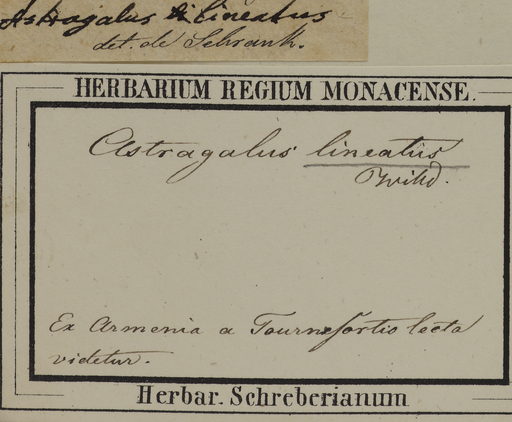 Astragalus lineatus
det. de Schrank.
HERBARIUM REGIUM MONACENSE.
Astragalus lineatus
Willd.
Ex Armenia a Tournefortio lecta
videtur.
Herbar. Schreberianum